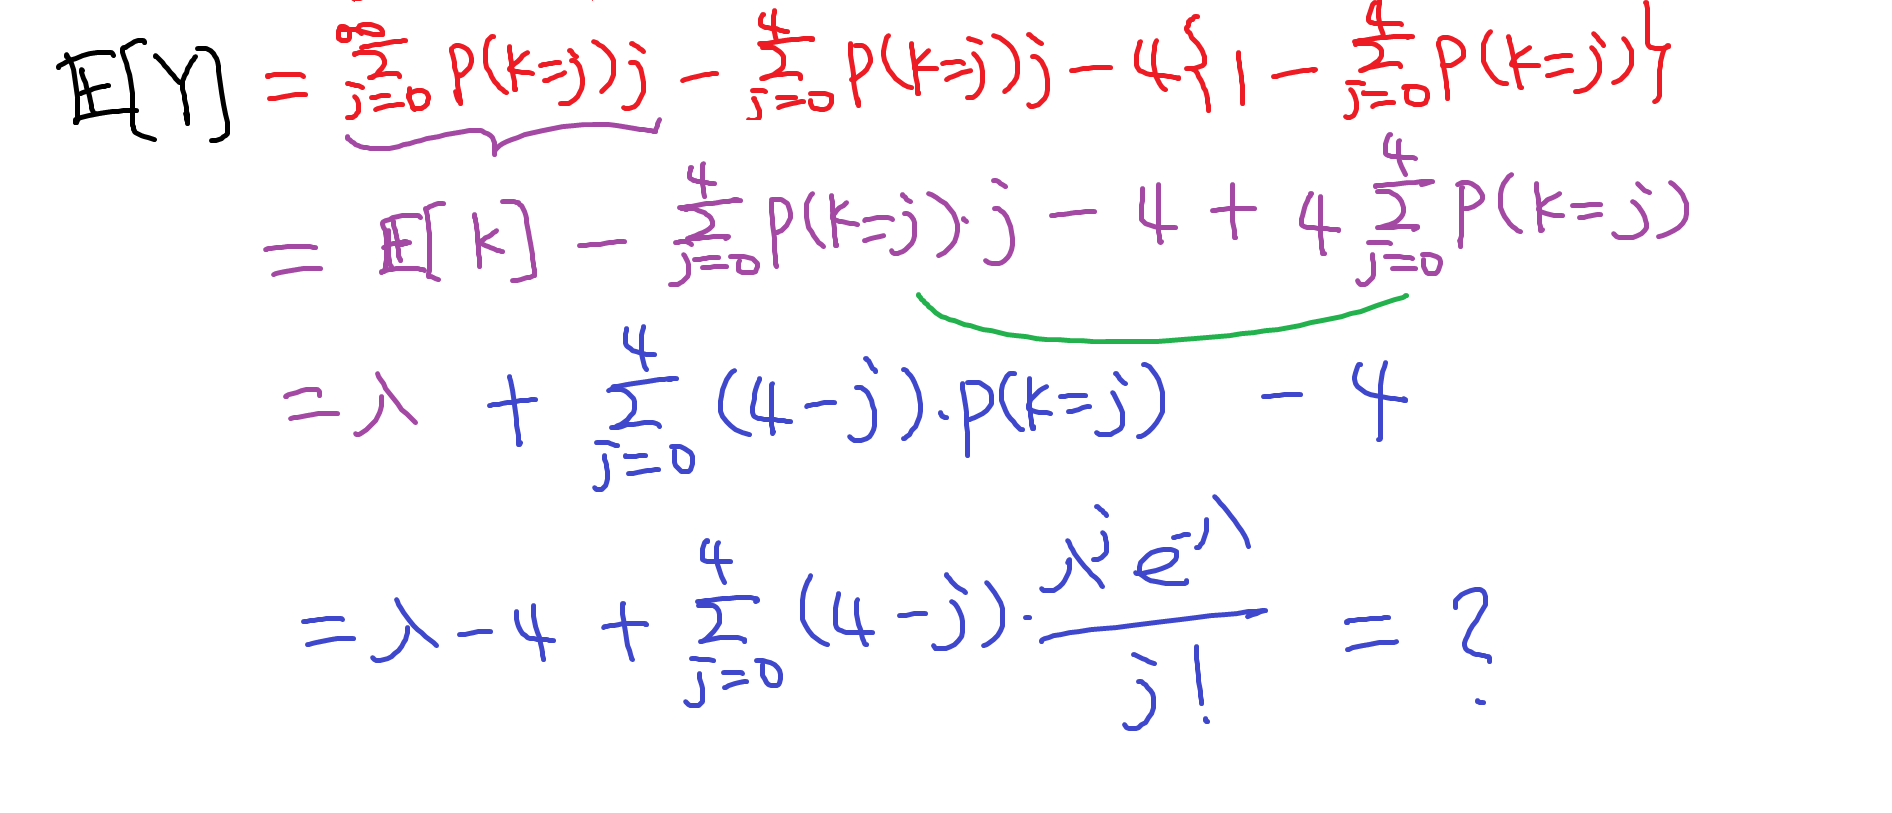 𝔼[Y] = ∞∑j=0 P(k=j)j − 4∑j=0 P(k=j)j − 4{1 − 4∑j=0 P(k=j)}
= 𝔼[k] − 4∑j=0 P(k=j)·j − 4 + 4 4∑j=0 P(k=j)
= λ + 4∑j=0 (4−j)·P(k=j) − 4
= λ − 4 + 4∑j=0 (4−j)·λ^j e^−λ / j! = ?